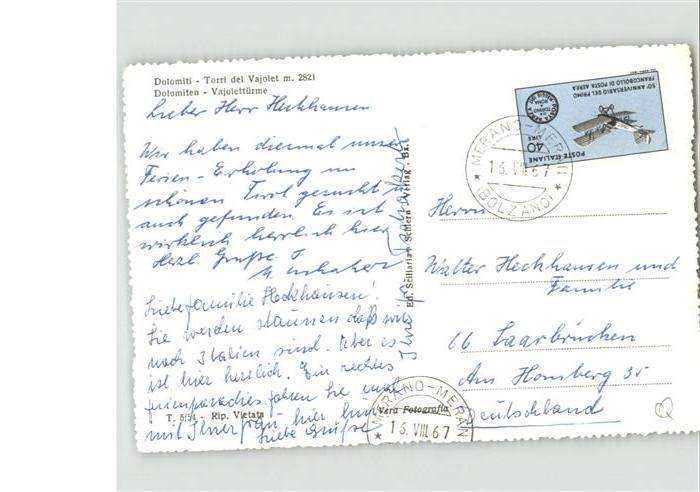 Dolomiti - Torri del Vajolet m. 2821
Dolomiten - Vajolettürme
Lieber Herr Heckhausen
Wir haben diesmal unsere
Ferien-Erholung im
schönen Tirol gesucht u.
auch gefunden. Es ist
wirklich herrlich hier
Herzl. Grüße
Liebe Familie Heckhausen!
Sie werden staunen daß wir
nach Italien sind. Aber es
ist hier herrlich. Ein rechtes
Ferienparadies fahren Sie mal
mit Ihrer Frau hier hin
Liebe Grüße
Ihre
T. 5/51 - Rip. Vietata
Vera Fotografia
Ed. Sciliaria - Schlern - Verlag - Bz.
MERANO-MERAN
16.VIII.67
(BOLZANO)
50° ANNIVERSARIO DEL PRIMO
FRANCOBOLLO DI POSTA AEREA
LIRE 40
POSTE ITALIANE
Herrn
Walter Heckhausen und
Familie
66 Saarbrücken
Am Homberg 35
Deutschland
MERANO-MERAN
16.VIII.67